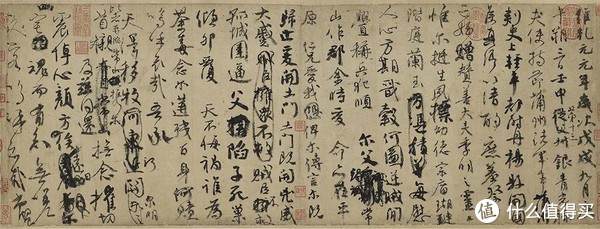 維乾元元年歲次戊戌九月庚
午朔三日壬申第十三叔銀青光祿
夫使持節蒲州諸軍事蒲州
刺史上輕車都尉丹楊縣開國
侯真卿以清酌庶羞祭于
亡姪贈贊善大夫季明之靈曰
惟爾挺生夙標幼德宗廟瑚璉
階庭蘭玉每慰
人心方期戩穀何圖逆賊閒
釁稱兵犯順爾父竭誠常
山作郡余時受命亦在平
原仁兄愛我俾爾傳言爾既
歸止爰開土門土門既開凶威
大蹙賊臣不救
孤城圍逼父陷子死巢
傾卵覆天不悔禍誰為
荼毒念爾遘殘百身何贖
嗚呼哀哉吾承
天澤移牧河關泉明
比者再陷常山攜爾
首櫬及茲同還撫念摧切
震悼心顏方俟遠日
卜爾幽宅魂而有知無嗟
久客嗚呼哀哉尚饗
值 什么值得买